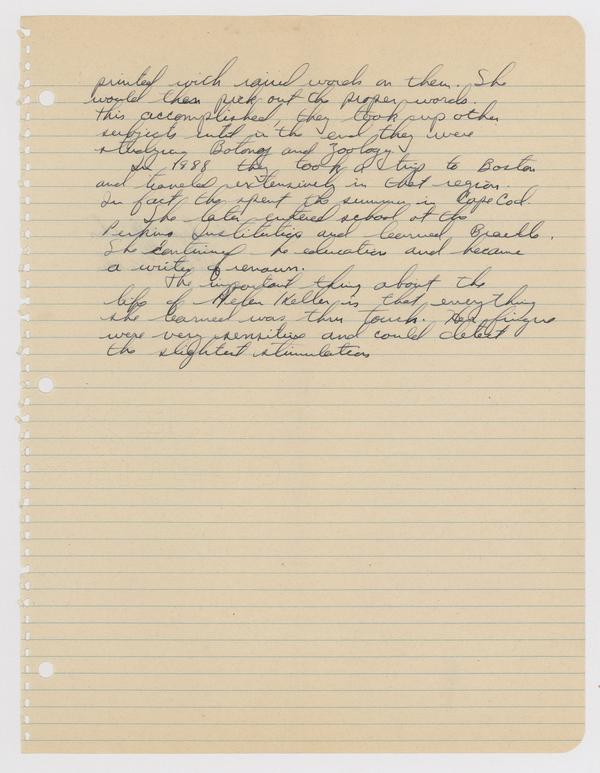 printed with raised words on them. She
would then pick out the proper words.
This accomplished, they took up other
subjects until in the end they were
studying Botony and Zoology.
In 1888 they took a trip to Boston
and traveled extensively in that region.
In fact they spent the summer in Cape Cod.
She later entered school at the
Perkins Institution and learned Braille.
She continued he education and became
a writer of renown.
The important thing about the
life of Helen Keller is that everything
she learned was thru touch. Her fingers
were very sensitive and could detect
the slightest stimulation